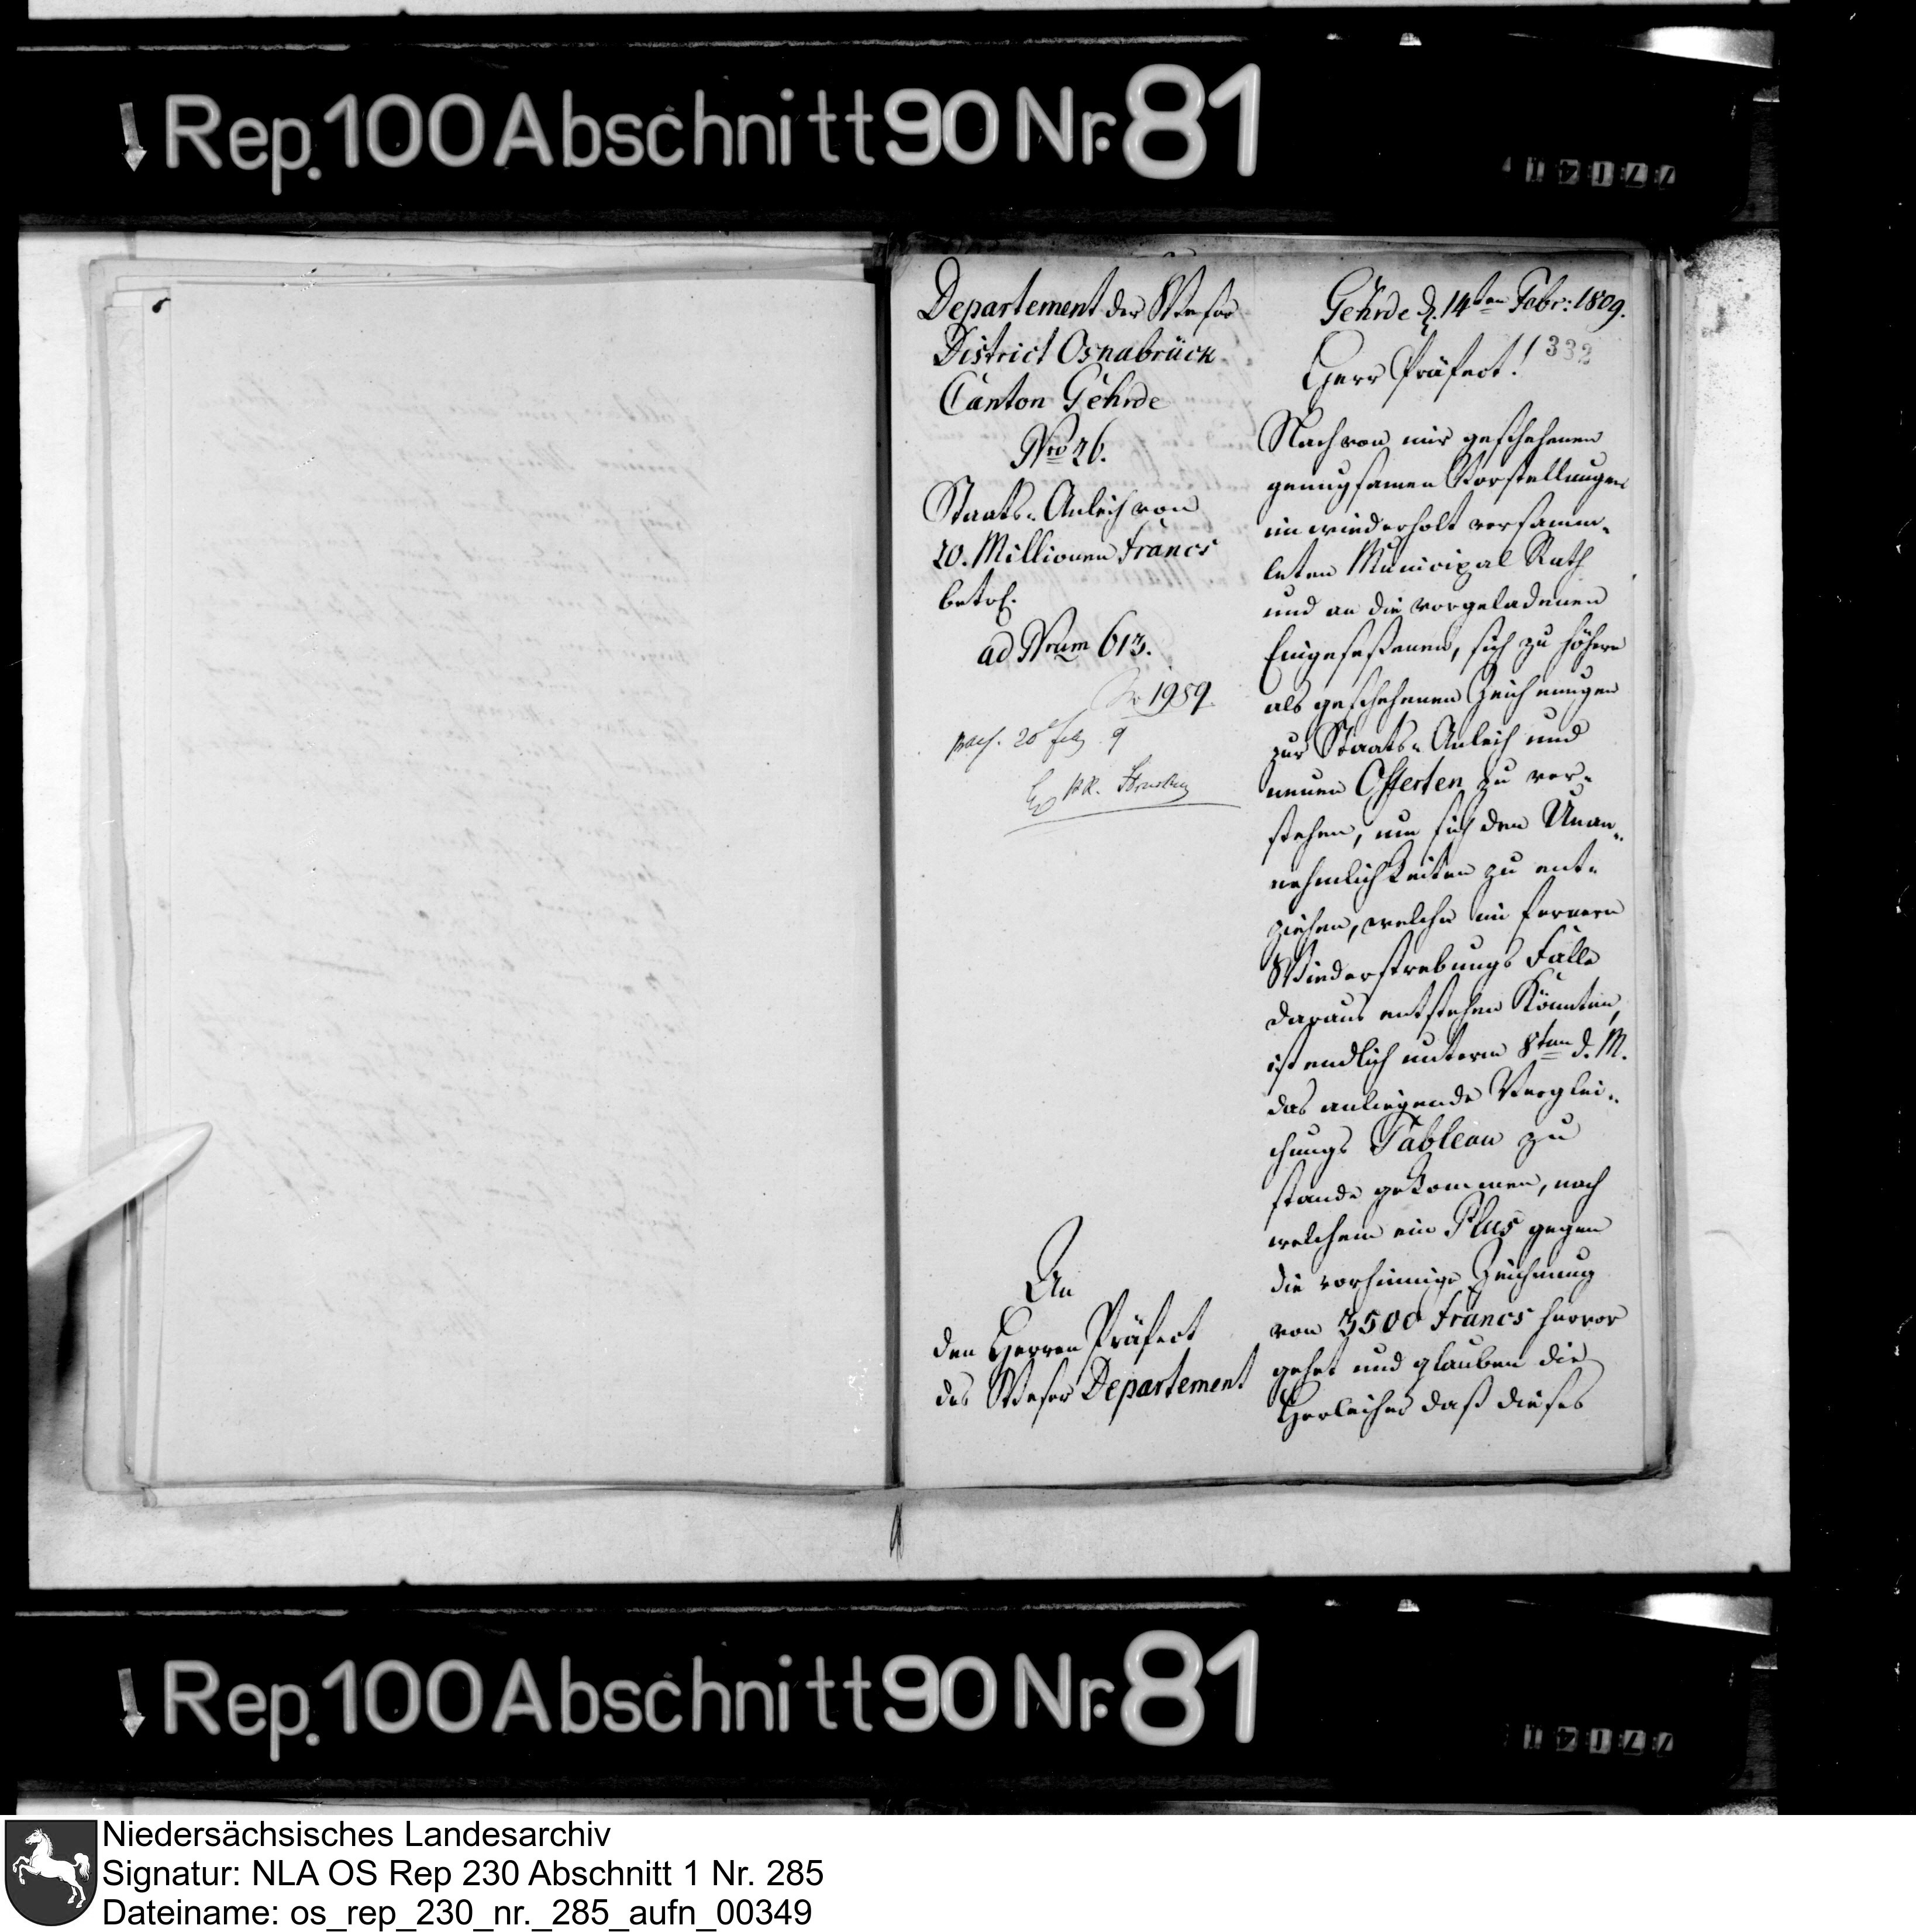 Rep. 100 Abschnitt 90 Nr. 81
Departement der Weser
District Osnabrück
Canton Gehrde
Nro 26.
Staats-Anleih von
20. Millionen Francs
betrf.
ad Nrum 613.
1959.
20 Feb 9
An
den Herren Präfect
des Weser Departement
Gehrde d. 14ten Febr: 1809.
332
Herr Präfect!
Nach von mir geschehenen
genugsamen Vorstellungen
im wiederholt versamm-
leten Municipal Rath
und an die vorgeladenen
Eingesaßenen, sich zu höhern
als geschehenen Zeichnungen
zur Staats-Anleih und
neuen Offerten zu ver-
stehen, um sich den Unan-
nehmlichkeiten zu ent-
ziehen, welche im fernern
Wiederstrebungs Falle
daraus entstehen könnten,
ist endlich unterm 8ten d. M.
das anliegende Verglei-
chungs Tableau zu
stande gekommen, nach
welchem ein Plus gegen
die vorherige Zeichnung
von 3500 Francs hervor
gehet und glauben die
daß dieses
Rep. 100 Abschnitt 90 Nr. 81
Niedersächsisches Landesarchiv
Signatur: NLA OS Rep 230 Abschnitt 1 Nr. 285
Dateiname: os_rep_230_nr._285_aufn_00349